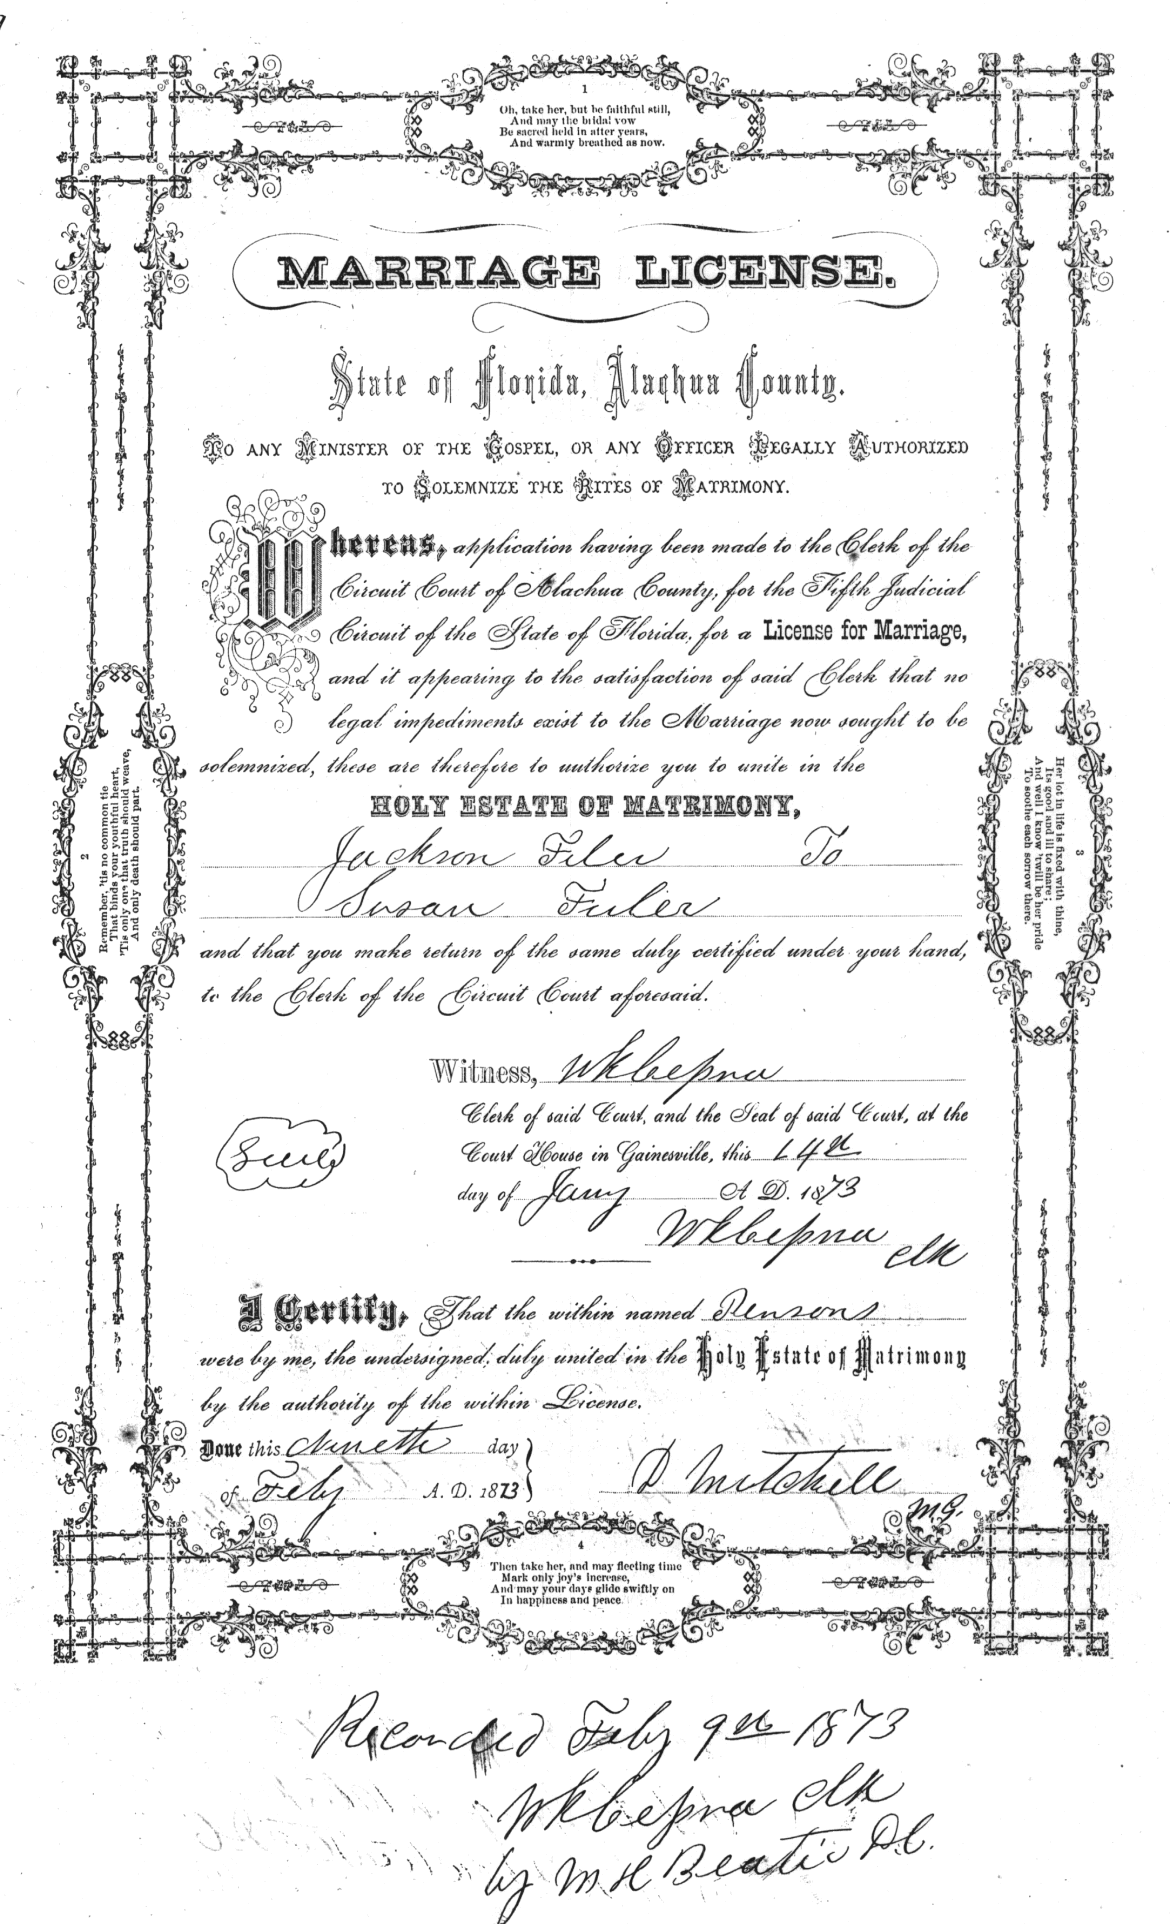 1
Oh, take her, but be faithful still,
And may the bridal vow
Be sacred held in after years,
And warmly breathed as now.
MARRIAGE LICENSE.
State of Florida, Alachua County.
TO ANY MINISTER OF THE GOSPEL, OR ANY OFFICER LEGALLY AUTHORIZED
TO SOLEMNIZE THE RITES OF MATRIMONY.
Whereas, application having been made to the Clerk of the
Circuit Court of Alachua County, for the Fifth Judicial
Circuit of the State of Florida, for a License for Marriage,
and it appearing to the satisfaction of said Clerk that no
legal impediments exist to the Marriage now sought to be
solemnized, these are therefore to authorize you to unite in the
HOLY ESTATE OF MATRIMONY,
Jackson Feler To
Susan Fuler
and that you make return of the same duly certified under your hand,
to the Clerk of the Circuit Court aforesaid.
Witness, Wk Cessna
Clerk of said Court, and the Seal of said Court, at the
Court House in Gainesville, this 14th
day of Jany A. D. 1873
Seal
Wk Cessna clk
I Certify, That the within named Persons
were by me, the undersigned, duly united in the Holy Estate of Matrimony
by the authority of the within License.
Done this Nineth day
of Feby A. D. 1873
D Mitchell
M.G.
2
Remember, 'tis no common tie
That binds your youthful heart,
'Tis only one that truth should weave,
And only death should part.
3
Her lot in life is fixed with thine,
Its good and ill to share;
And well I know 'twill be her pride
To soothe each sorrow there.
4
Then take her, and may fleeting time
Mark only joy's increase,
And may your days glide swiftly on
In happiness and peace.
Recorded Feby 9th 1873
Wk Cessna clk
by M H Beatie D.C.